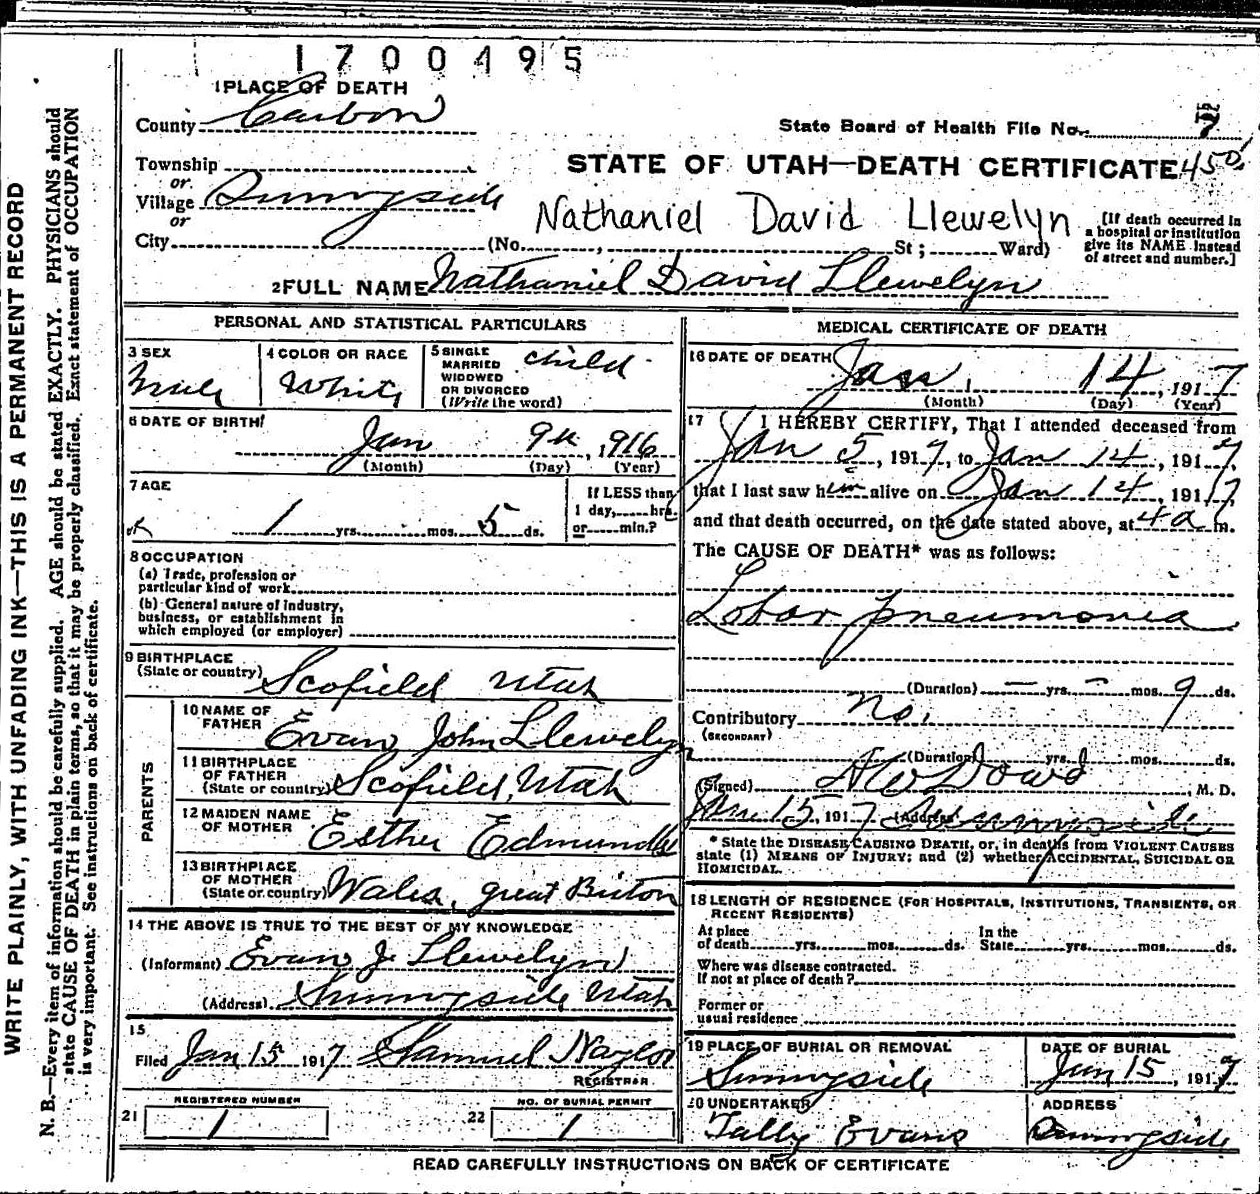 1700495
1 PLACE OF DEATH
County Carbon
State Board of Health File No. 7
Township
or
Village Sunnyside
or
City (No. , St ; Ward)
STATE OF UTAH—DEATH CERTIFICATE 450
Nathaniel David Llewelyn
[If death occurred in
a hospital or institution
give its NAME instead
of street and number.]
2 FULL NAME Nathaniel David Llewelyn
PERSONAL AND STATISTICAL PARTICULARS
3 SEX
Male
4 COLOR OR RACE
White
5 SINGLE
MARRIED
WIDOWED
OR DIVORCED
(Write the word)
child
6 DATE OF BIRTH
Jan 9th, 1916
(Month) (Day) (Year)
7 AGE
1 yrs. mos. 5 ds.
If LESS than
1 day, hrs.
or min.?
8 OCCUPATION
(a) Trade, profession or
particular kind of work
(b) General nature of industry,
business, or establishment in
which employed (or employer)
9 BIRTHPLACE
(State or country) Scofield Utah
PARENTS
10 NAME OF
FATHER Evan John Llewelyn
11 BIRTHPLACE
OF FATHER
(State or country) Scofield, Utah
12 MAIDEN NAME
OF MOTHER Esther Edmunds
13 BIRTHPLACE
OF MOTHER
(State or country) Wales, great Briton
14 THE ABOVE IS TRUE TO THE BEST OF MY KNOWLEDGE
(Informant) Evan J. Llewelyn
(Address) Sunnyside Utah
15
Filed Jan 15 1917 Samuel Naylor
REGISTRAR
21 REGISTERED NUMBER
1
22 NO. OF BURIAL PERMIT
1
MEDICAL CERTIFICATE OF DEATH
16 DATE OF DEATH
Jan. 14, 1917
(Month) (Day) (Year)
17 I HEREBY CERTIFY, That I attended deceased from
Jan 5, 1917, to Jan 14, 1917,
that I last saw him alive on Jan 14, 1917,
and that death occurred, on the date stated above, at 4 a m.
The CAUSE OF DEATH* was as follows:
Lobar pneumonia
(Duration) — yrs. — mos. 9 ds.
Contributory No.
(SECONDARY)
(Duration) yrs. mos. ds.
(Signed) Dowd, M. D.
Jan 15, 1917 (Address) Sunnyside
* State the DISEASE CAUSING DEATH, or, in deaths from VIOLENT CAUSES
state (1) MEANS OF INJURY; and (2) whether ACCIDENTAL, SUICIDAL OR
HOMICIDAL.
18 LENGTH OF RESIDENCE (FOR HOSPITALS, INSTITUTIONS, TRANSIENTS, OR
RECENT RESIDENTS)
At place
of death yrs. mos. ds.
In the
State yrs. mos. ds.
Where was disease contracted.
If not at place of death?
Former or
usual residence
19 PLACE OF BURIAL OR REMOVAL
Sunnyside
DATE OF BURIAL
Jan 15, 1917
20 UNDERTAKER
Tally Evans
ADDRESS
Sunnyside
READ CAREFULLY INSTRUCTIONS ON BACK OF CERTIFICATE
WRITE PLAINLY, WITH UNFADING INK—THIS IS A PERMANENT RECORD
N. B.—Every item of information should be carefully supplied. AGE should be stated EXACTLY. PHYSICIANS should
state CAUSE OF DEATH in plain terms, so that it may be properly classified. Exact statement of OCCUPATION
is very important. See instructions on back of certificate.